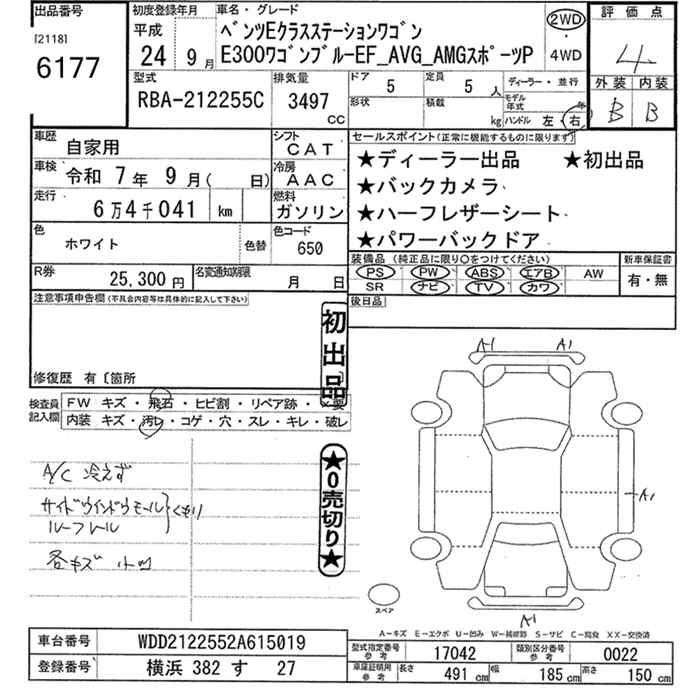 出品番号
[2118]
6177
初度登録年月
平成
24 年 9 月
車名・グレード
ベンツEクラスステーションワゴン
E300ワゴンブルーEF_AVG_AMGスポーツP
2WD
・
4WD
評価点
4
外装 内装
B B
型式
RBA-212255C
排気量
3497
CC
ドア
5
定員
5 人
形状
積載
kg
ディーラー・並行
モデル年式
年
ハンドル 左・右
車歴
自家用
シフト
CAT
車検
令和 7 年 9 月( 日)
冷房
AAC
走行
6万4千041 km
燃料
ガソリン
色
ホワイト
色替
色コード
650
R券
25,300 円
名変通知期限
月 日
セールスポイント(正常に機能するものに限ります)
★ディーラー出品 ★初出品
★バックカメラ
★ハーフレザーシート
★パワーバックドア
装備品 (純正品に限り○をつけてください)
PS PW ABS エアB AW
SR ナビ TV カワ
新車保証書
有・無
後日品
注意事項申告欄(不具合内容等は具体的に記入して下さい)
初出品
修復歴 有〔箇所 〕
検査員記入欄
FW キズ・飛石・ヒビ割・リペア跡・×要
内装 キズ・汚レ・コゲ・穴・スレ・キレ・破レ
A/C 冷えず
サイドウインドウモール
ルーフレール
くもり
各キズ 小凹
★0売切り★
A1 A1
A1
A1
スペア
A－キズ E－エクボ U－凹み W－補修跡 S－サビ C－腐食 XX－交換済
車台番号
WDD2122552A615019
登録番号
横浜 382 す 27
型式指定番号
参考
17042
類別区分番号
参考
0022
車庫証明用
参考
長さ
491 cm
幅
185 cm
高さ
150 cm